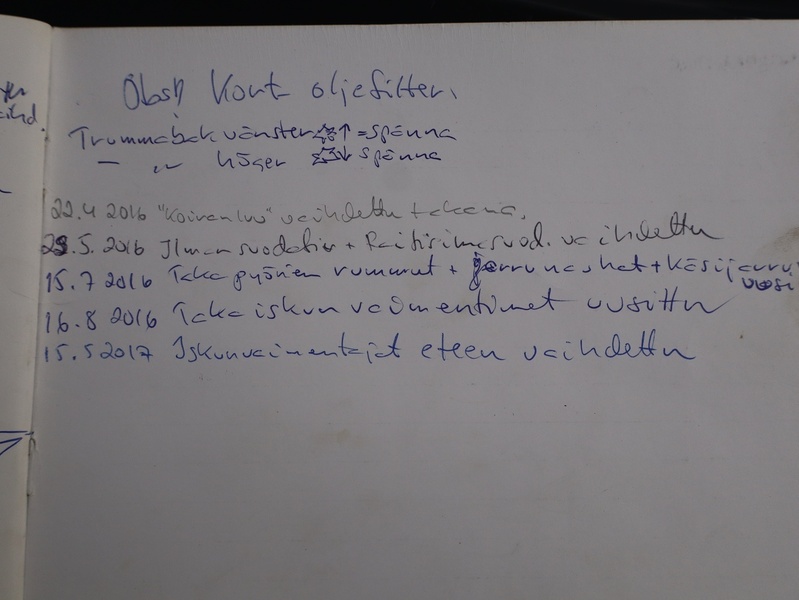 Obs!! Kort oljefilter.
Trummabak vänster ↑ = spänna
— " — höger ↓ spänna
22.4 2016 "Koiran luu" vaihdettu takana.
28.5. 2016 Ilmansuodatin + Raitisilmasuod. vaihdettu
15.7 2016 Taka pyörien rummut + jarrunashat + Käsijarru
uusi
16.8 2016 Taka iskunvaimentimet uusittu
15.5 2017 Iskunvaimentajat eteen vaihdettu